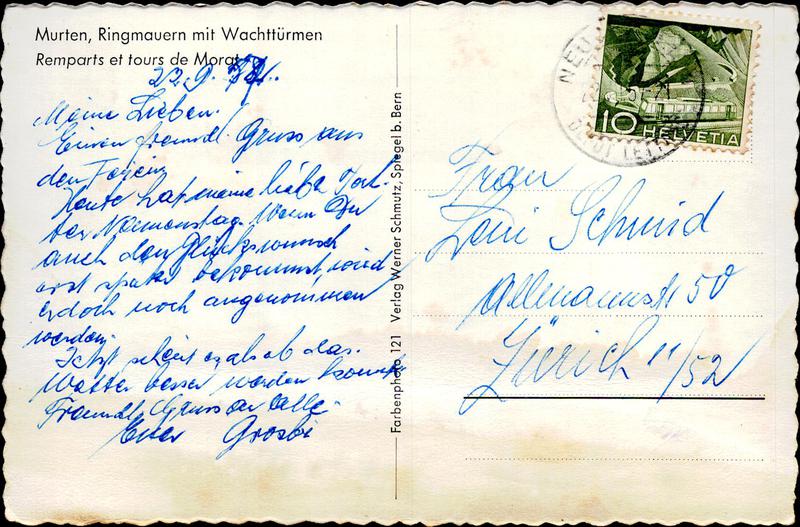 Murten, Ringmauern mit Wachttürmen
Remparts et tours de Morat
Meine Lieben.
Einen freundl. Gruss aus
den Ferien
Heute hat meine liebe Toch-
ter Namenstag. Wenn Du
auch den Glückswunsch
erst später bekommst, wird
er doch noch angenommen
werden.
Jetzt scheint es als ob das
Wetter besser werden könnte
Freundl. Gruss an alle
Euer
Farbenphoto 121 Verlag Werner Schmutz, Spiegel b. Bern
10 HELVETIA
Frau
Leni Schmid
Allmannstr 50
Zürich 11/52